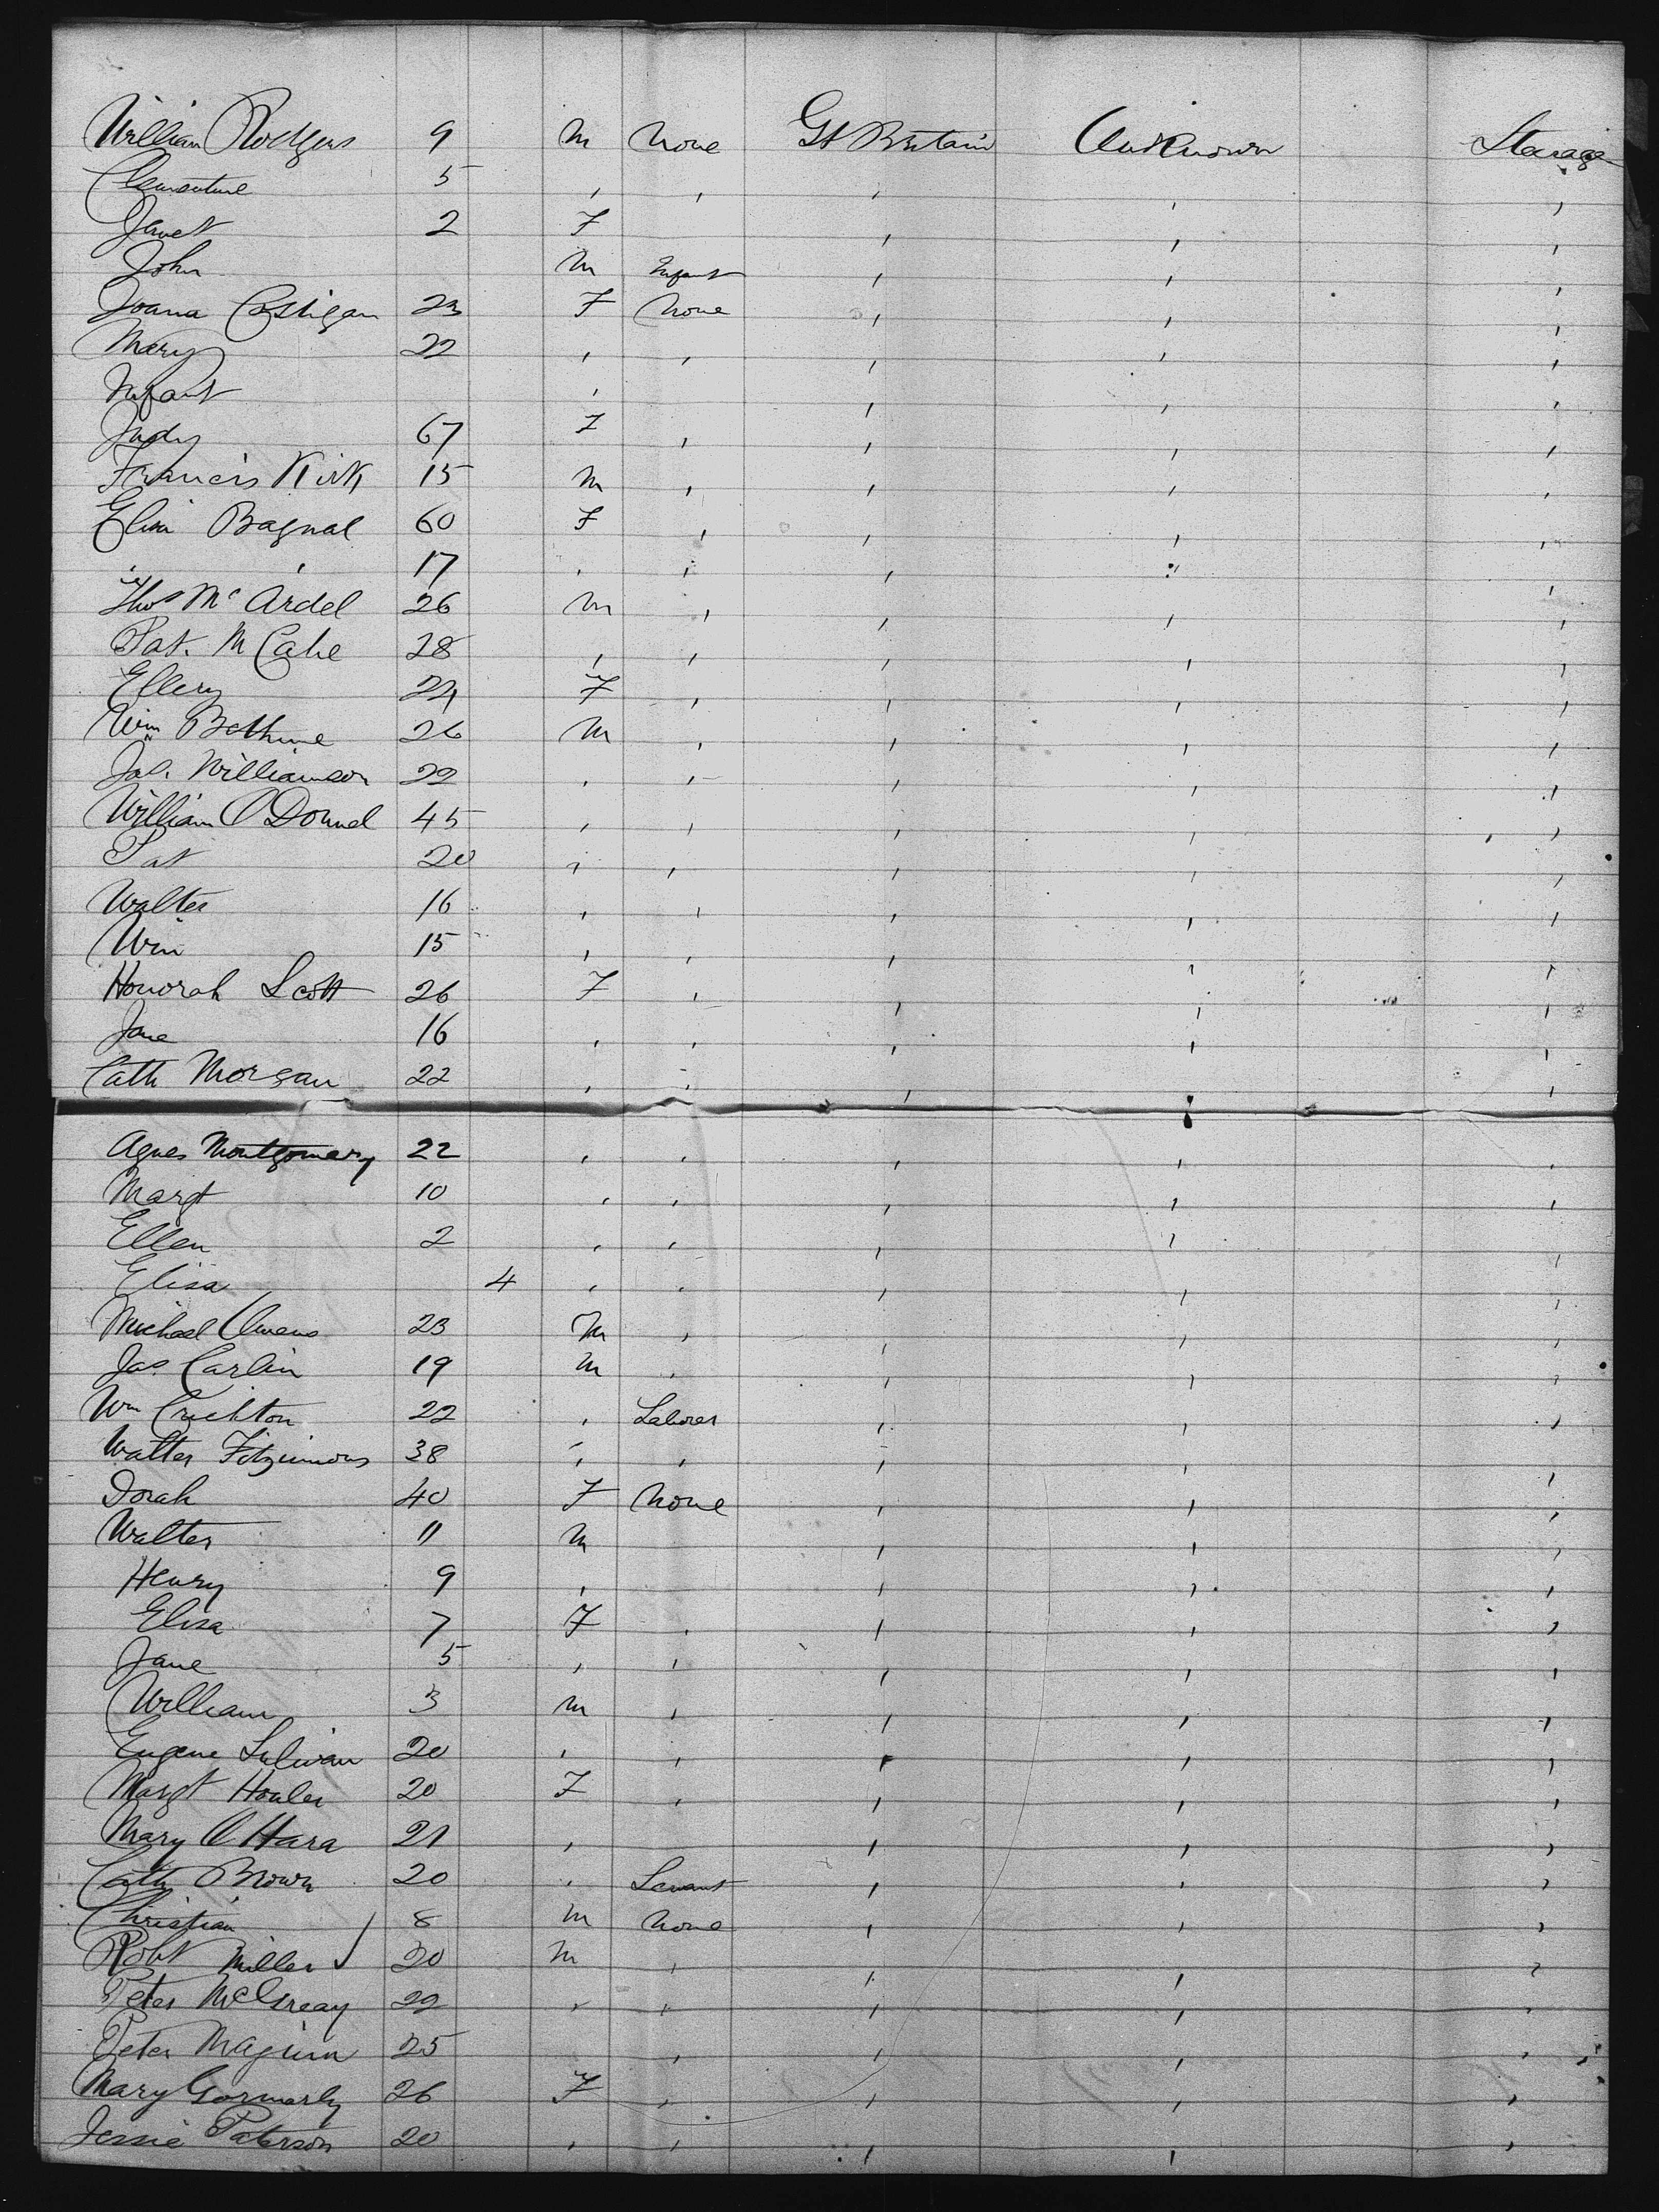 William Rodgers 9 M None Gt Britain Unknown Steerage
Clementine 5 , , , , ,
Janet 2 F , , ,
John M Infant , , ,
Joana Costigan 23 F None , , ,
Mary 22 , , , , ,
Infant , , , ,
Judy 67 F , , , ,
Francis Kirk 15 M , , , ,
Eliza Bagnal 60 F , , , ,
, , 17 , , , , ,
Thos McArdel 26 M , , , ,
Pat. McCabe 28 , , , , ,
Ellery 24 F , , , ,
Wm Bethune 26 M , , , ,
Jas. Williamson 22 , , , , ,
William O'Donnel 45 , , , , ,
Pat 20 , , , , ,
Walter 16 , , , , ,
Wm 15 , , , , ,
Honorah Scott 26 F , , , ,
Jane 16 , , , , ,
Cath Morgan 22 , , , , ,
Agnes Montgomery 22 , , , , ,
Margt 10 , , , , ,
Ellen 2 , , , , ,
Elisa 4 , , , , ,
Michael Owens 23 M , , , ,
Jas. Carlin 19 M , , , ,
Wm Crichton 22 , Laborer , , ,
Walter Fitzsimons 38 , , , , ,
Dorah 40 F None , , ,
Walter 11 M , , ,
Henry 9 , , , ,
Elisa 7 F , , , ,
Jane 5 , , , , ,
William 3 M , , , ,
Eugene Sulivan 20 , , , , ,
Margt Howler 20 F , , , ,
Mary O Hara 21 , , , ,
Cath Brown 20 , Servant , , ,
Christian , 8 M None , , ,
Robt Miller 20 M , , , ,
Peter McGreay 22 , , , , ,
Peter Maguim 25 , , , ,
Mary Gormerly 26 F , , , ,
Jessie Paterson 20 , , , , ,